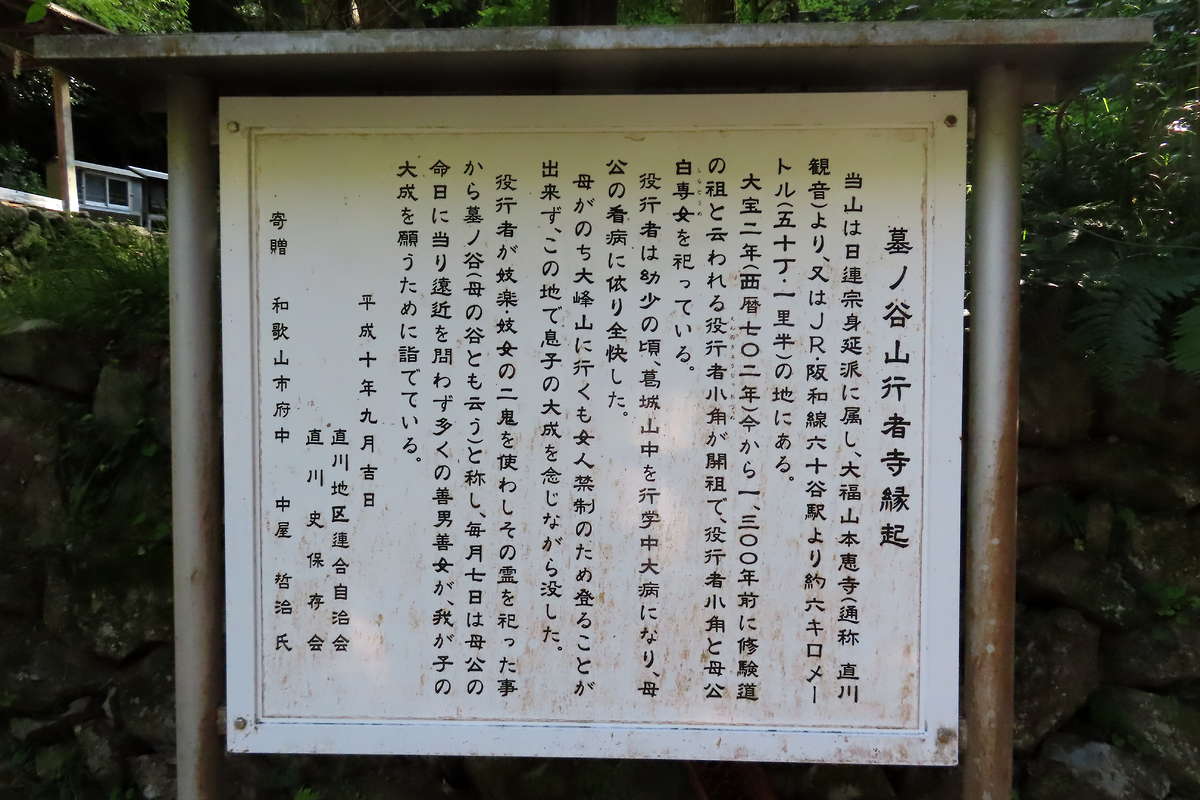 墓ノ谷山行者寺縁起
当山は日連宗身延派に属し、大福山本恵寺(通称 直川
観音)より、又はJR・阪和線六十谷駅より約六キロメー
トル(五十丁・一里半)の地にある。
大宝二年(西暦七〇二年)今から一、三〇〇年前に修験道
の祖と云われる役行者小角が開祖で、役行者小角と母公
白専女を祀っている。
役行者は幼少の頃、葛城山中を行学中大病になり、母
公の看病に依り全快した。
母がのち大峰山に行くも女人禁制のため登ることが
出来ず、この地で息子の大成を念じながら没した。
役行者が妓楽・妓女の二鬼を使わしその霊を祀った事
から墓ノ谷(母の谷とも云う)と称し、毎月七日は母公の
命日に当り遠近を問わず多くの善男善女が、我が子の
大成を願うために詣でている。
平成十年九月吉日
直川地区連合自治会
直川史保存会
寄贈 和歌山市府中 中屋 哲治 氏